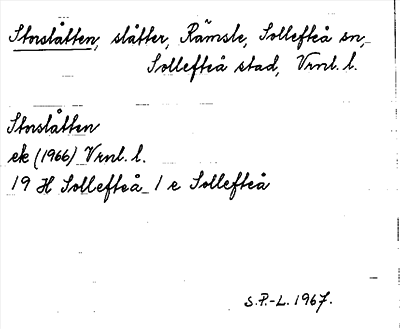 Storslåtten, slåtter, Rämsle, Sollefteå sn,
Sollefteå stad, Vrnl. l.
Storslåtten
ek (1966) Vrnl. l.
19 H Sollefteå 1 e Sollefteå
S.P.-L. 1967.